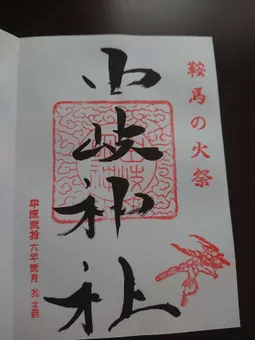 鞍馬の火祭
由岐神社
平成弐拾六年弐月拾五日